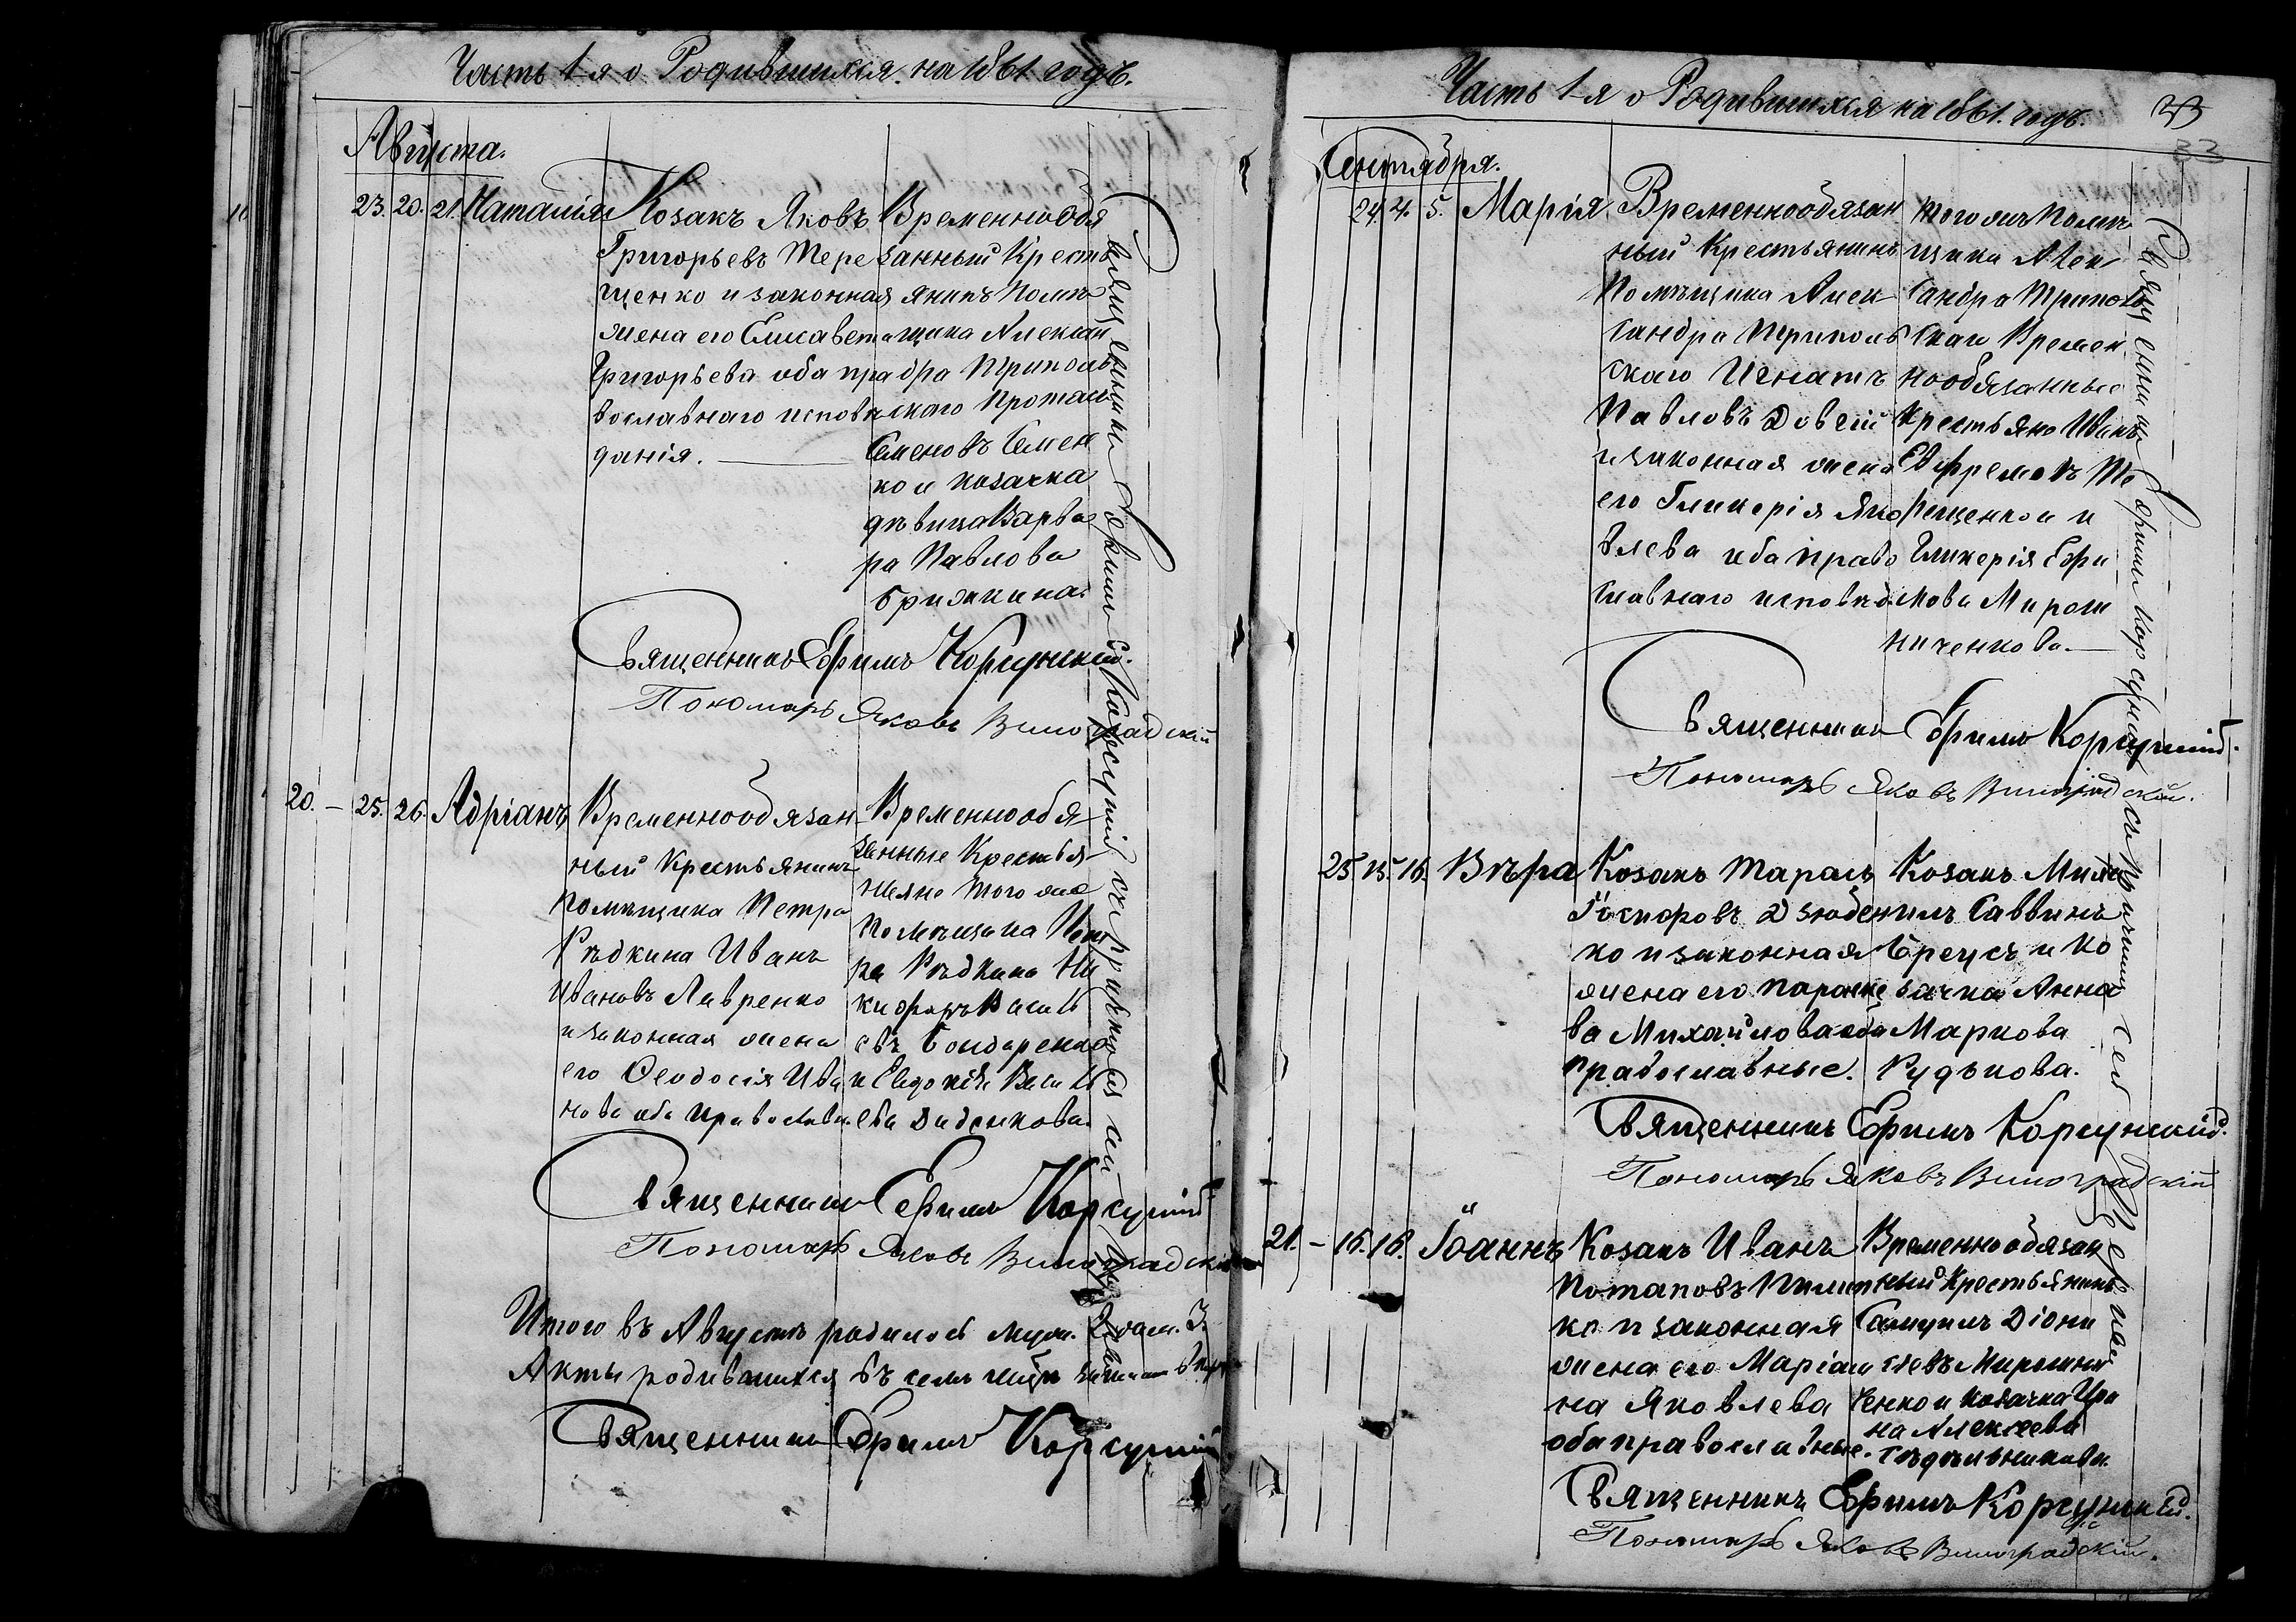 Часть 1-я о Родившихся на 1861 годъ.
Августа.
23. 20. 21. Наталія
Козакъ Яковъ
Григорьевъ Тере
щенко и законная
жена его Елисавета
Григорьева оба пра
вославнаго исповѣ
данія.
Временнообя
занный Кресть
янинъ Помѣ
щика Алексан
дра Триполь
скаго
Семеновъ Семен
ко и козачка
дѣвица Варва
ра Павлова
Брижкина.
Священникъ Ефимъ Корсунскій.
Пономарь Яковъ Виноградскій
20. – 25. 26. Адріанъ
Временнообязан
ный Крестьянинъ
помѣщика Петра
Рѣдкина Иванъ
Ивановъ Лавренко
и законная жена
его Ѳеодосія Ива
нова оба Православн.
Временнообя
занные Крестья
того же
помѣщика Пет
ра Рѣдкина Ни
кифоръ Василь
евъ Бондаренко
и Евдокія Василь
ева Диденкова.
Священникъ Ефимъ Корсунскій
Пономарь Яковъ Виноградскій
Итого въ Августѣ родилось муж. 2 жен. 3.
Акты родившихся въ семъ
Священникъ Ефимъ Корсунскій
Священникъ Ефимъ Корсунскій съ причтомъ
Часть 1-я о Родившихся на 1861. годъ.
33
Сентября.
24. 4. 5. Марія
Временнообязан
ный Крестьянинъ
Помѣщика Алек
сандра Триполь
скаго Игнатъ
Павловъ Довгій
и законная жена
его Гликерія Яко
влева оба право
славнаго исповѣд.
того жъ Помѣ
щика Алек
сандра Триполь
скаго Времен
нообязанные
Крестьяне Иванъ
Евфремовъ Те
рещенко и
Гликерія Ефи
мова Мирош
ниченкова.
Священникъ Ефимъ Корсунскій.
Пономарь Яковъ Виноградскій.
25. 15. 16. Вѣра
Козакъ Тарасъ
Іосифовъ Дзюбен
ко и законная
жена его Параске
ва Михайлова оба
православные.
Козакъ Миха
илъ Саввинъ
Бреусъ и ко
зачка Анна
Маркова
Рудькова.
Священникъ Ефимъ Корсунскій.
Пономарь Яковъ Виноградскій
21. – 16. 18. Іоаннъ
Козакъ Иванъ
Потаповъ Пилип
ко и законная
жена его Маріам
на Яковлева
оба православные.
Временнообязан
ный Крестьянинъ
Самуилъ Діони
сіевъ Мирошни
ченко и козачка Ири
на Алексѣева
Сѣдѣльникова.
Священникъ Ефимъ Корсунскій.
Пономарь Яковъ Виноградскій.
Священникъ Ефимъ Корсунскій съ причтомъ